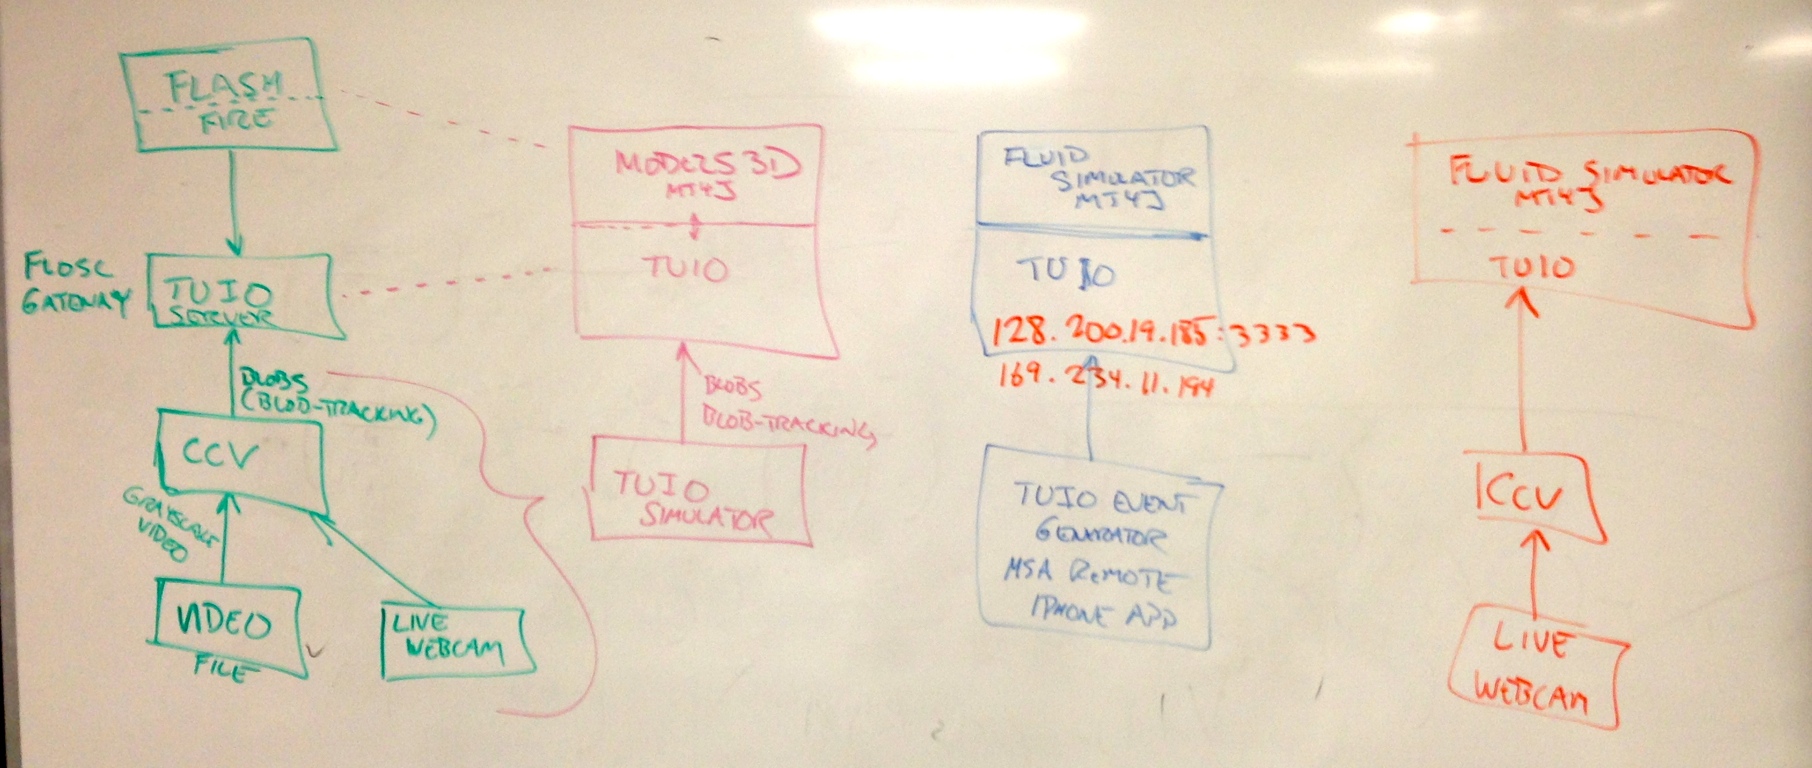 FLASH
FIRE
FLOSC
GATEWAY
TUIO
SERVER
BLOBS
(BLOB-TRACKING)
CCV
GRAYSCALE
VIDEO
VIDEO
FILE
LIVE
WEBCAM
MODELS 3D
MT4J
TUIO
BLOBS
BLOB-TRACKING
TUIO
SIMULATOR
FLUID
SIMULATOR
MT4J
TUIO
128.200.19.185:3333
169.234.11.194
TUIO EVENT
GENERATOR
MSA REMOTE
IPHONE APP
FLUID SIMULATOR
MT4J
TUIO
CCV
LIVE
WEBCAM